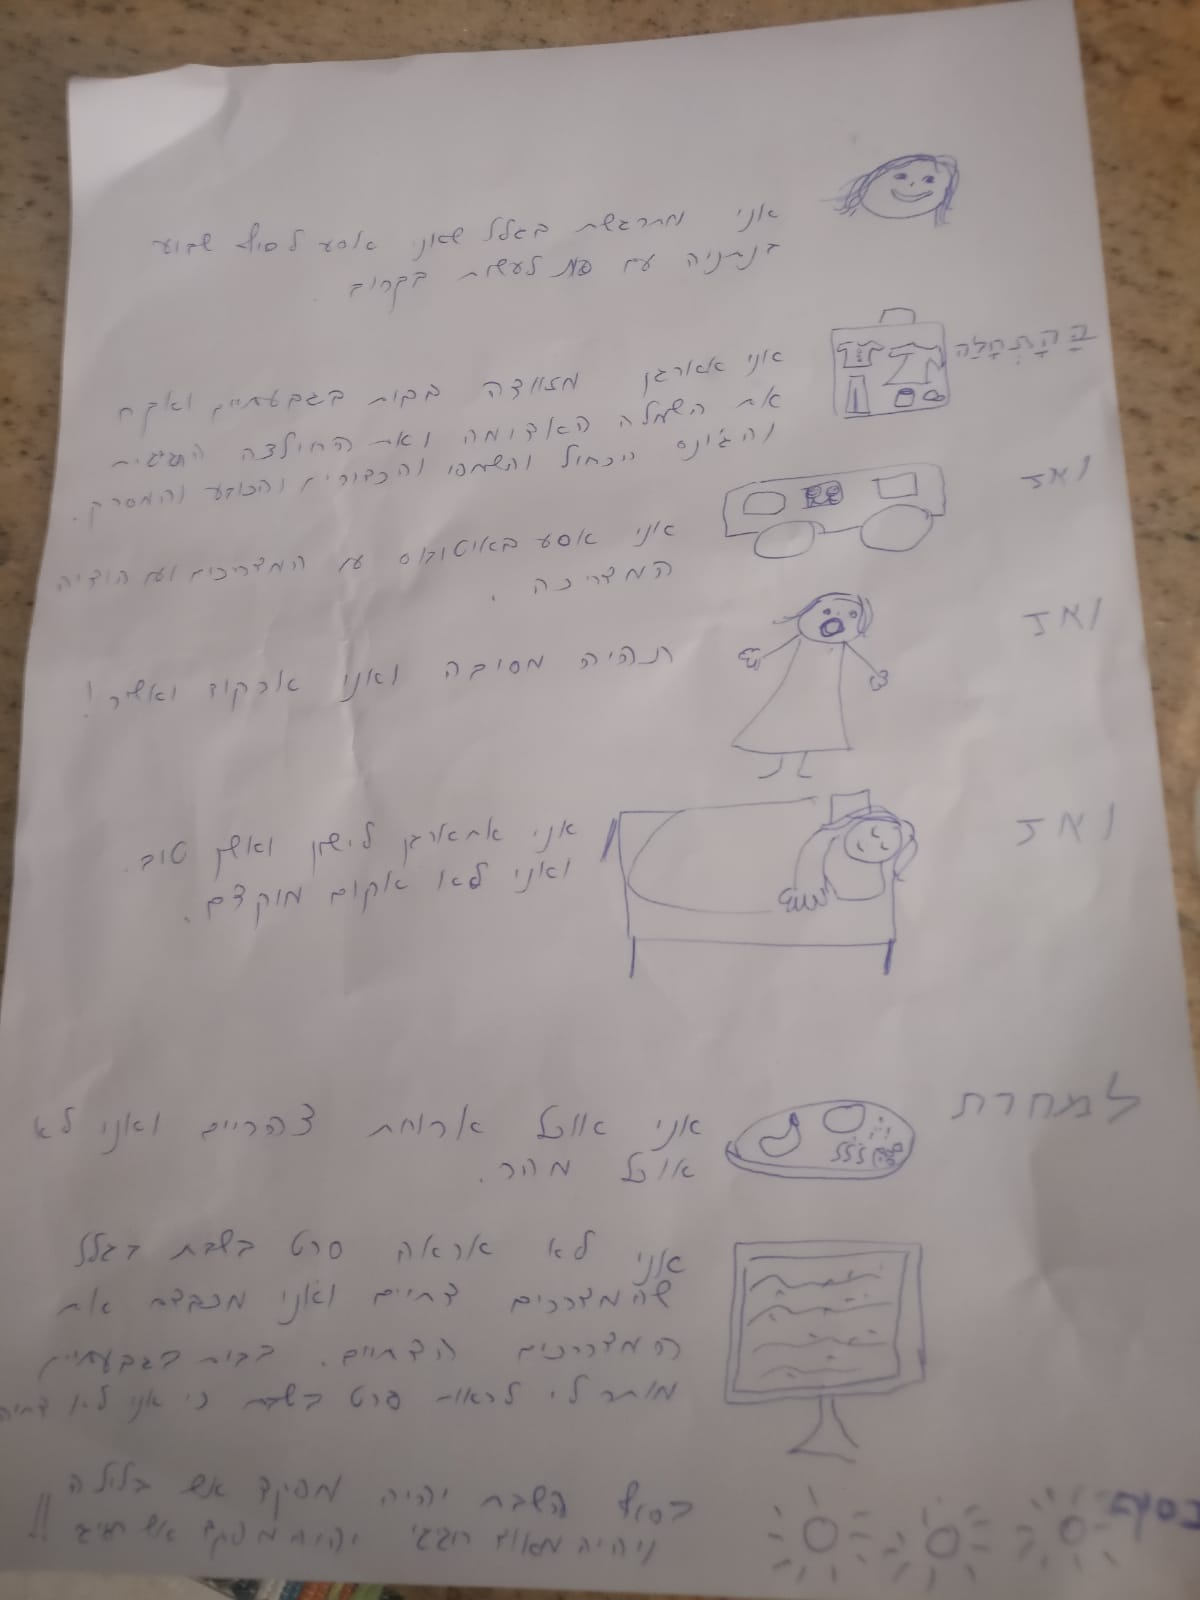 אני מתרגשת בגלל שאני אסע לסוף שבוע
בנתניה עם לעשות בקרוב.
בַּהַתְחָלָה
אני אארגן מזוודה בבית בגבעתיים ואקח
את השמלה האדומה ואת החולצה החגיגית
והג'ינס הכחול והשמפו והכדורים והכובע והמסרק.
ואז
אני אסע באיטובוס עם המדריכים ועם הודיה
המדריכה.
ואז
תהיה מסיבה ואני ארקוד ואשיר!
ואז
אני אתארגן לישון ואשן טוב.
ואני לא אקום מוקדם.
למחרת
אני אוכל ארוחת צהריים ואני לא
אוכל מהר.
אני לא אראה סרט בשבת בגלל
שהמדריכים דתיים ואני מכבדת את
המדריכים הדתיים. בבית בגבעתיים
מותר לי לראות סרט בשבת כי אני לא דתיה
בסוף
בסוף השבת יהיה מפקד אש בלילה
ויהיה מאוד חגיגי יהיה מפקד אש חגיגי!!